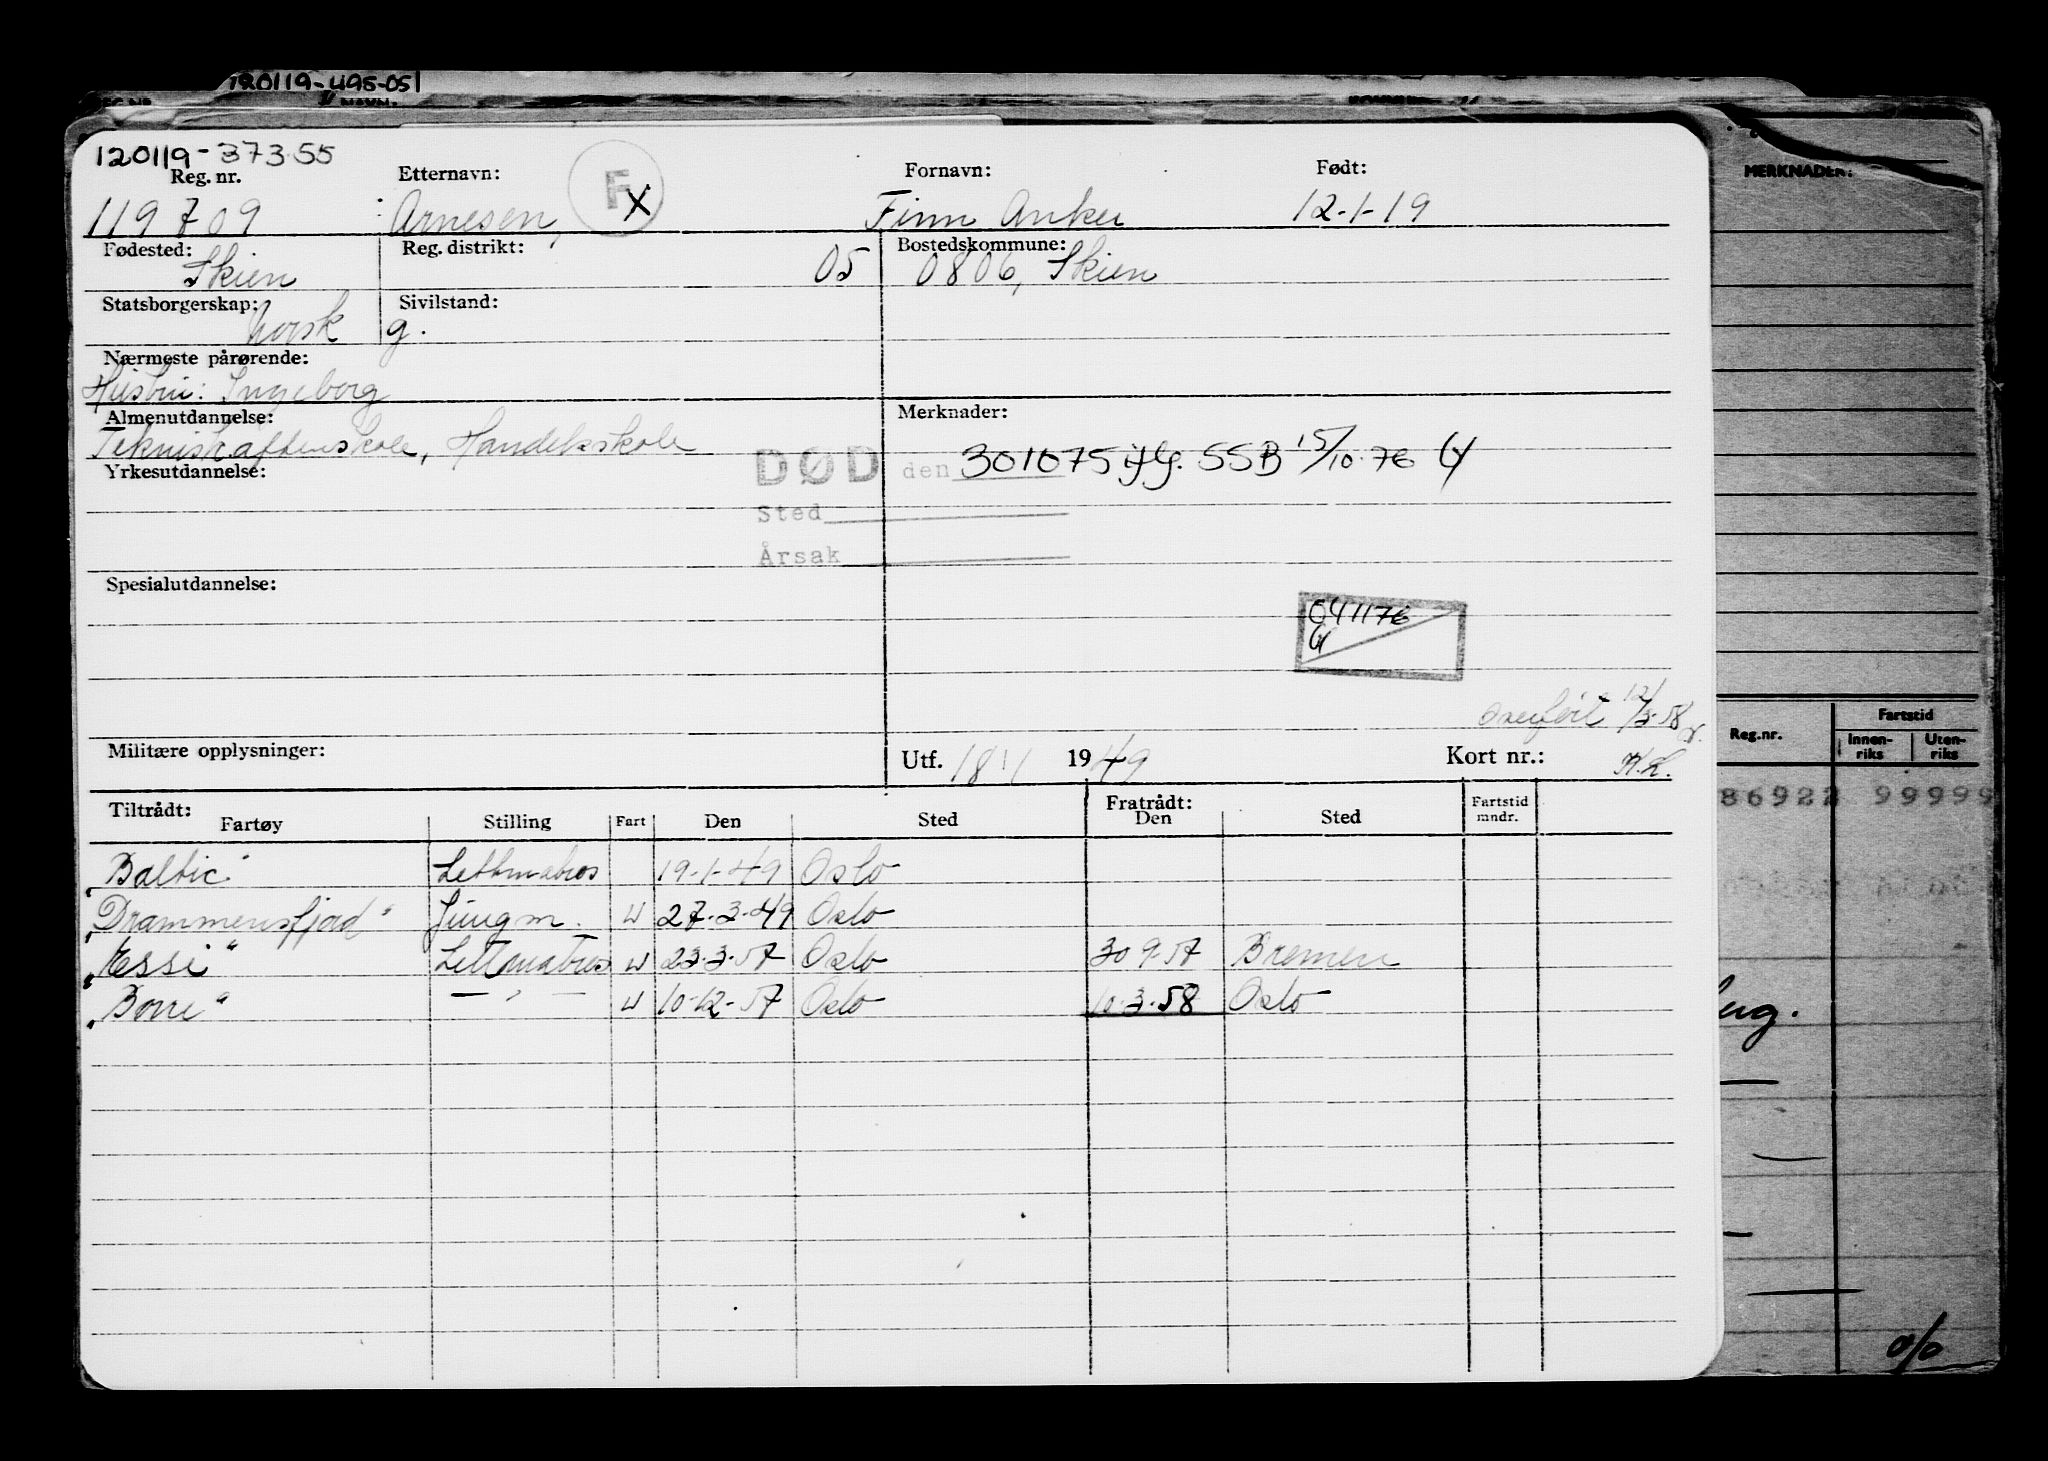 120119-495-05
NAVN:
120119-373.55
Reg. nr. Etternavn: F X Fornavn: Født:
119709 Arnesen, Finn Anker 12-1-19
Fødested: Reg. distrikt: Bostedskommune:
Skien 05 0806, Skien
Statsborgerskap: Sivilstand:
Norsk g.
Nærmeste pårørende:
Hustru: Ingeborg
Almenutdannelse: Merknader:
Teknisk aftenskole, Handelsskole
DØD den 301075 SSB 15/10.76
Yrkesutdannelse:
Sted
Årsak
Spesialutdannelse:
041176
overført 12/3.58
Militære opplysninger: Utf. 18/1 1949 Kort nr.:
Tiltrådt: Fratrådt:
Fartøy Stilling Fart Den Sted Den Sted Fartstid mndr.
"Baltic" Lettmatros 19-1-49 Oslo
"Drammensfjord" Jungm. U 27.3.49 Oslo
"Essi" Lettmatros U 23.3.57 Oslo 30 9.57 Bremen
"Borre" — " — U 10-12-57 Oslo 10.3.58 Oslo
MERKNADER:
Reg.nr. Fartstid
Innen-riks Uten-riks
86922 99999
o/o